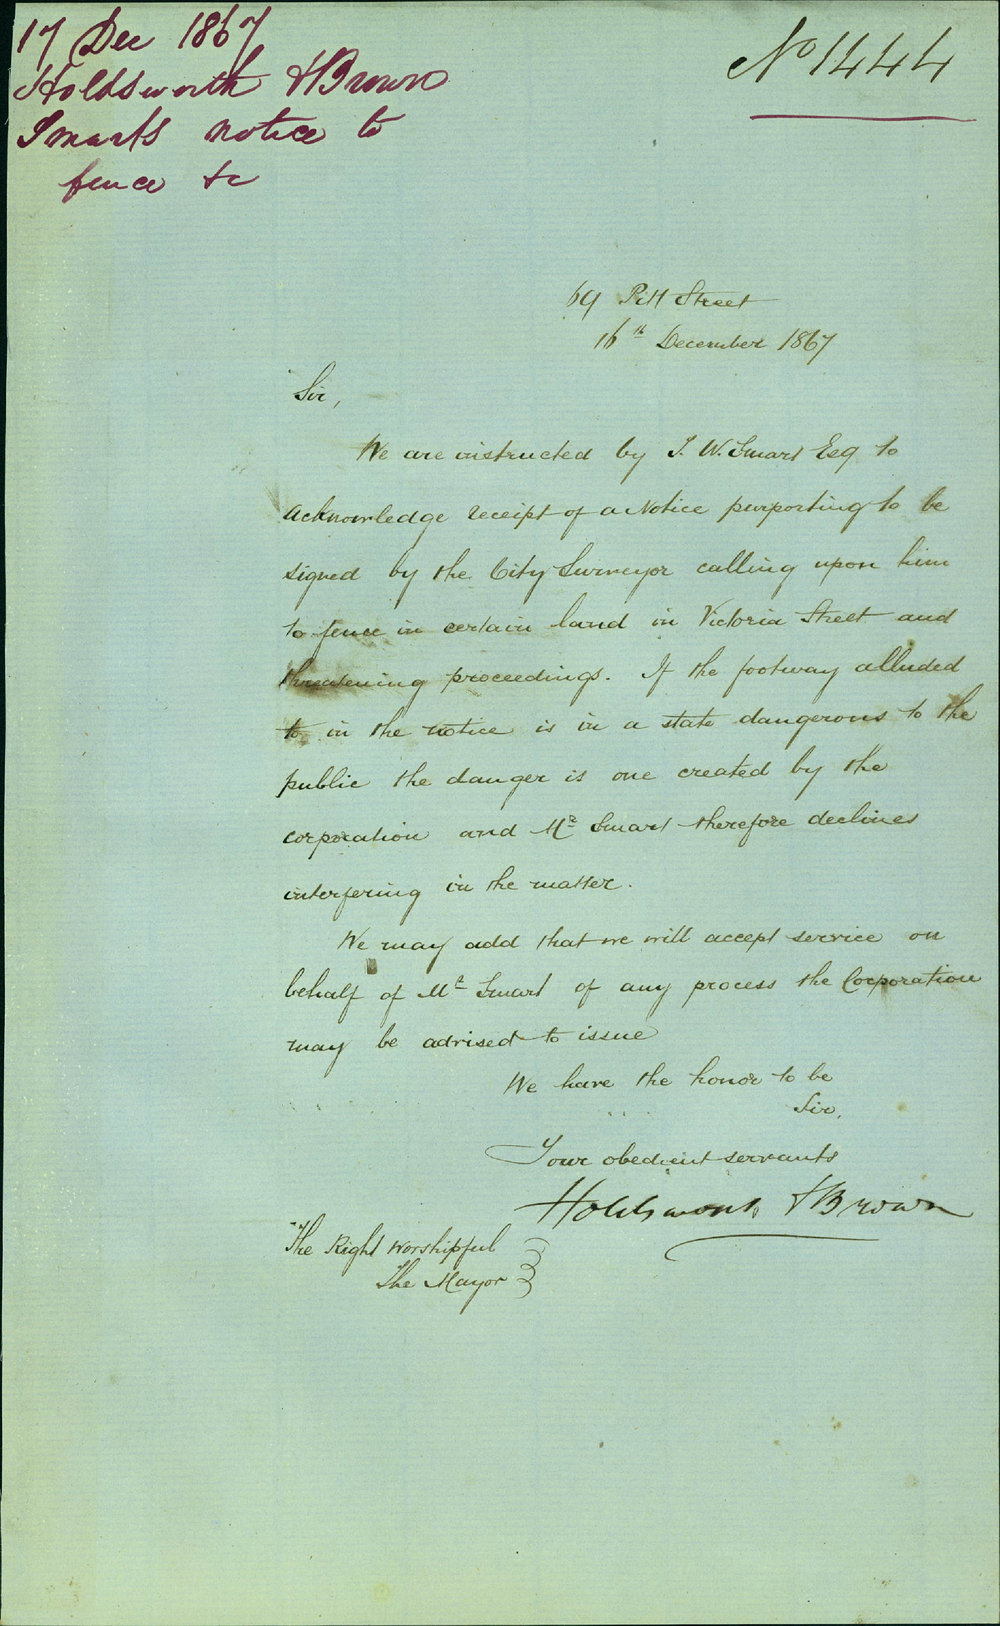 17 Dec 1867
Holdsworth & Brown
Smarts notice to
fence &c
No 1444
69 Pitt Street
16th December 1867
Sir,
We are instructed by T. W. Smart Esq to
acknowledge receipt of a Notice purporting to be
signed by the City Surveyor calling upon him
to fence in certain land in Victoria Street and
threatening proceedings. If the footway alluded
to in the notice is in a state dangerous to the
public the danger is one created by the
corporation and Mr Smart therefore declines
interfering in the matter.
We may add that we will accept service on
behalf of Mr Smart of any process the Corporation
may be advised to issue
We have the honor to be
Sir,
Your obedient servants
Holdsworth & Brown
The Right Worshipful
The Mayor